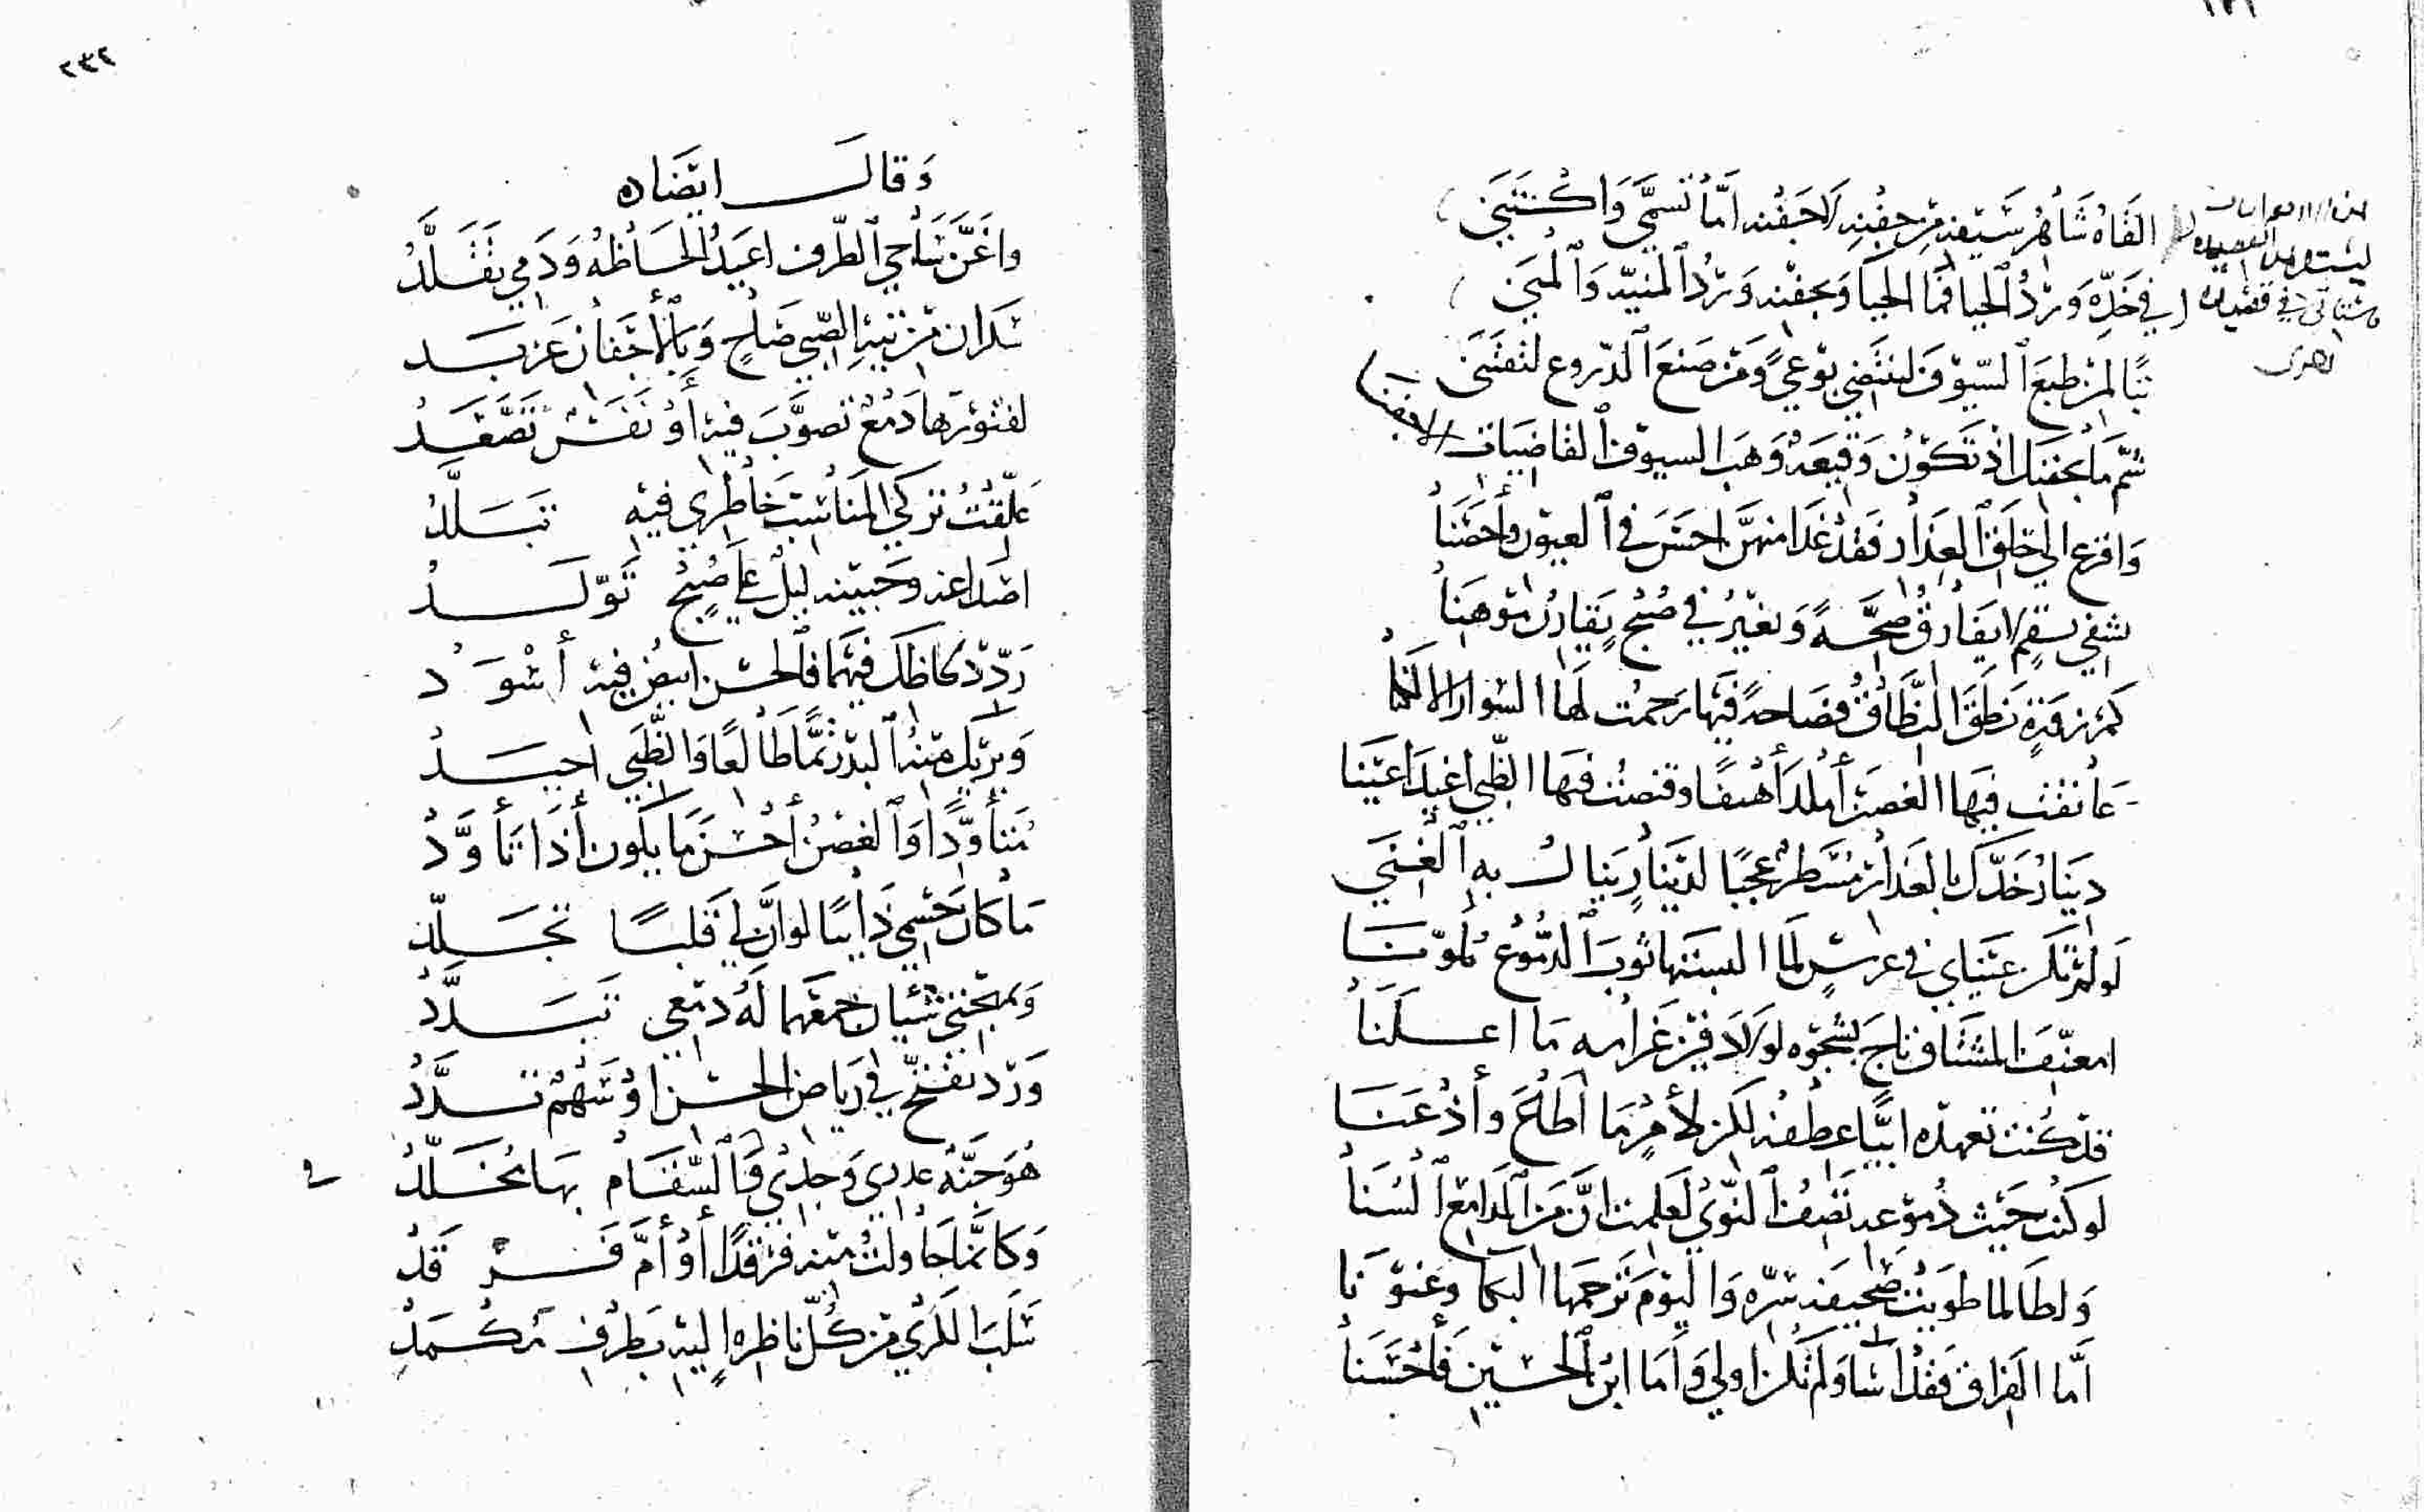 القاه شاهر سيفه من جفنه لا جفنه اما تسمى واكتنى
في خده ورد الحيا فما الحيا وبجفنه ورد المنية والمنى
تبا لمن طبع السيوف لتنتضى يوغى ومن صنع الدروع لتقتنى
شم ما بجفنك اذ تكون وقيعة وهب السيوف القاضيات
وافزع الى حلق العذار فقد غدا منهن احسن في العيون واحصنا
يشفي بسقم لا يفارق صحة ويغير في صبح يقارن موهنا
كم زفرة نطق النطاق فصاحة فيها رحمت لها السوار الالكنا
عانقت فيها الغصن أملد أهيفا وقنصت فيها الظبي اغيد اعينا
دينار خدك بالعذار مسطر عجبا لدينار ينال به الغنى
لو لم تكن عيناي في عرس لما البستها ثوب الدموع ملونا
امعنف المشتاق ناج بشجوه لولا دفين غرامه ما اعلنا
قد كنت تعهده ابيا عطفه لكن لأمر ما اطاع وأذعنا
لو كنت حيث دموعه تصف النوى لعلمت ان من المدامع السنا
ولطالما طويت صحيفة سره واليوم ترجمها البكا وعنونا
أما الفراق فقد اسا ولم تكن اولى واما ابن الحسين فأحسنا
لهذه القصيدة
في قصيدة
اخرى
٢٣٢
وقال ايضاه
واغن ساجي الطرف اغيد الحاظه ودمي تقلد
سكران من تيه الصبى صاح وبالأجفان عربد
لفتورها دمع تصوب فيه أو نفس تصعد
علقت تركي المناسب خاطري فيه تبلد
اصداغه وجبينه ليل على صبح تولد
ردد لحاظك فيهما فالحسن ابيض فيه أسود
ويريك منه البدر تما طالعا والظبي اجيد
متأودا والغصن أحسن ما يكون أذا تأود
ما كان جسمي ذائبا لو ان لي قلبا تجلد
وبمهجتي شيان جمعهما له دمعي تبدد
ورد تفتح في رياض الحسن او سهم تسدد
هو جنة عدني وجدي والسقام بها مخلد
وكانما حاولت منه فرقدا أو أم فرقد
سلب الكرى من كل ناظرة اليه بطرف مكمد